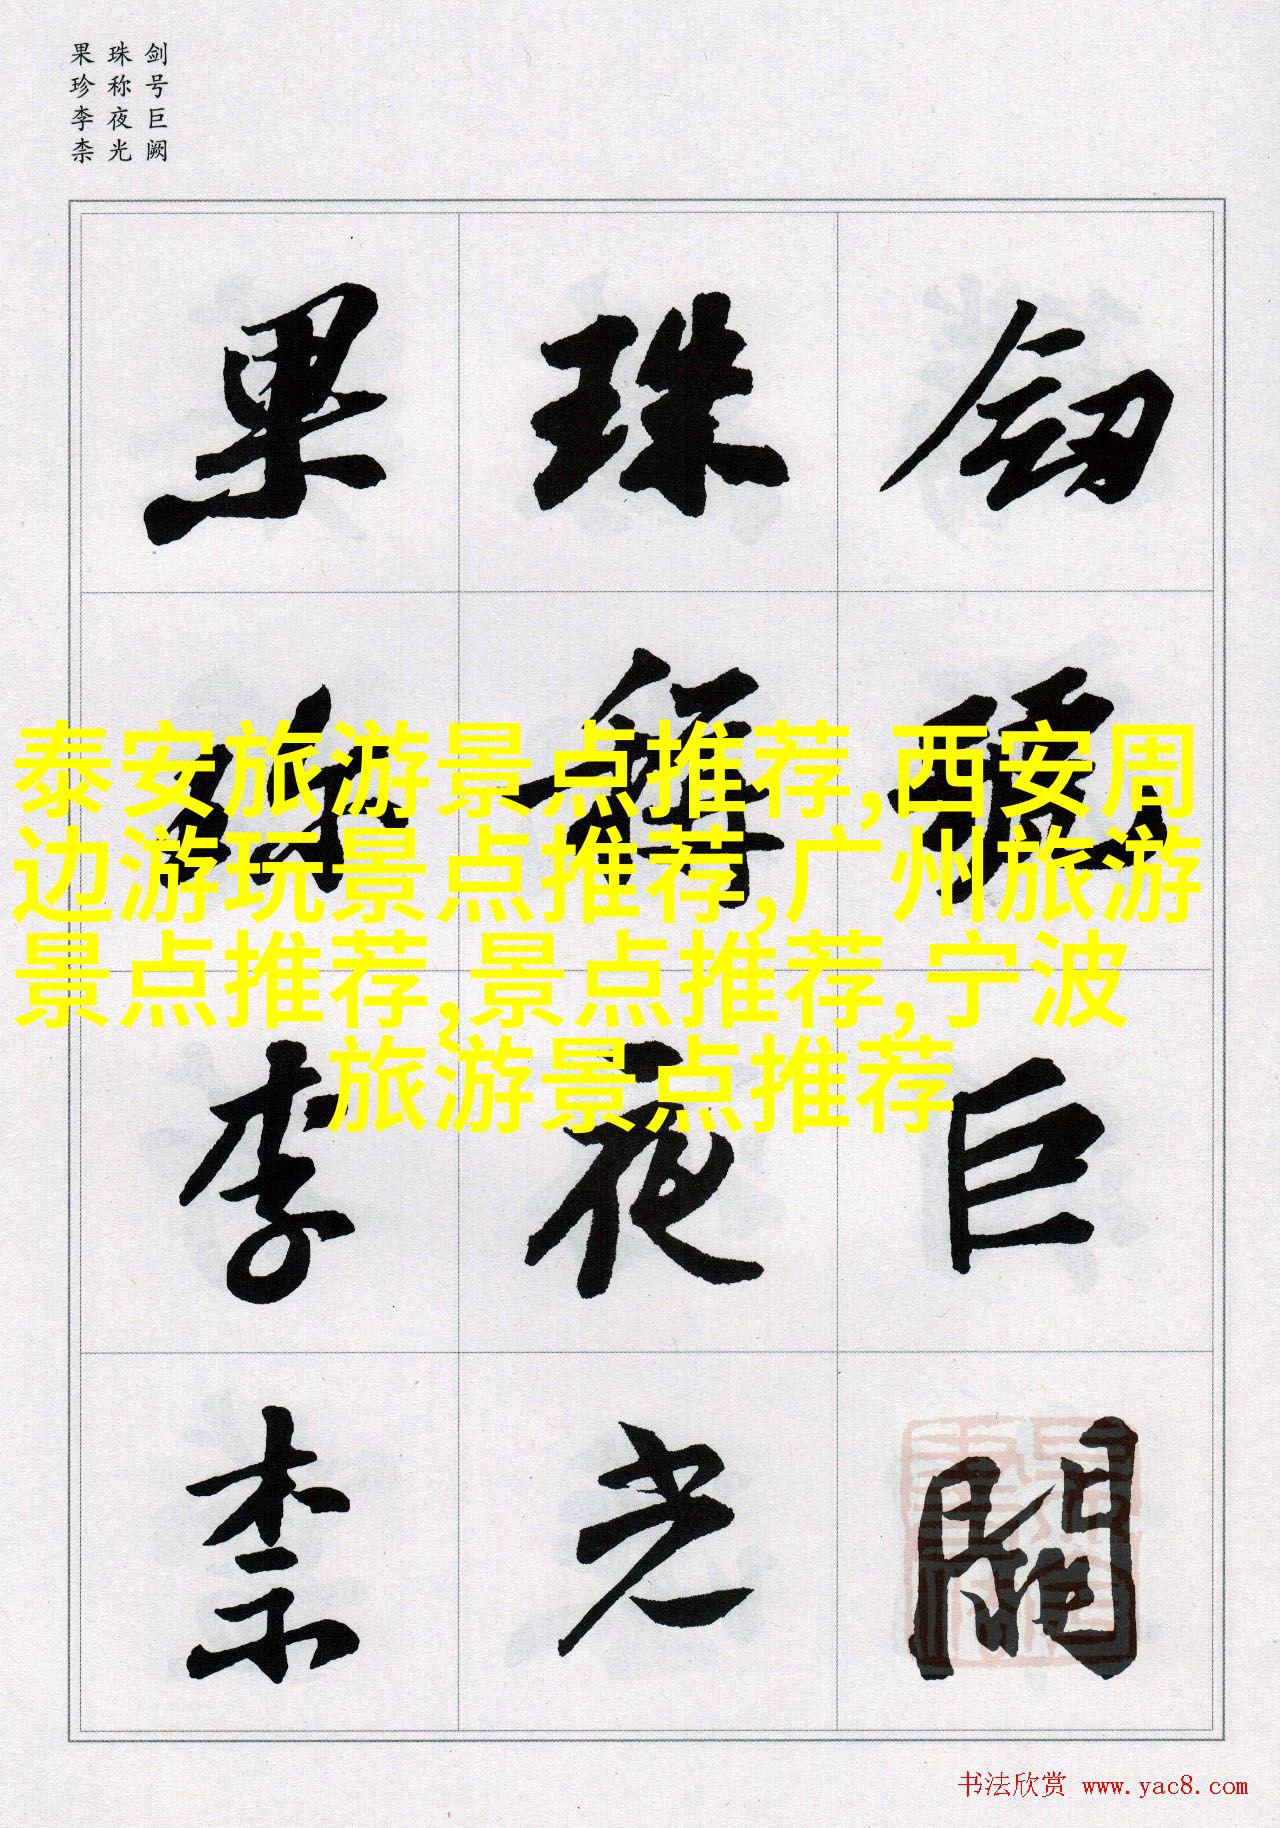 剑号巨阙
珠称夜光
果珍李柰
劒號巨闕
珠稱夜光
果珍李柰
泰安旅游景点推荐,西安周
边游玩景点推荐,广州旅游
景点推荐,景点推荐,宁波
旅游景点推荐
书法欣赏 www.yac8.com